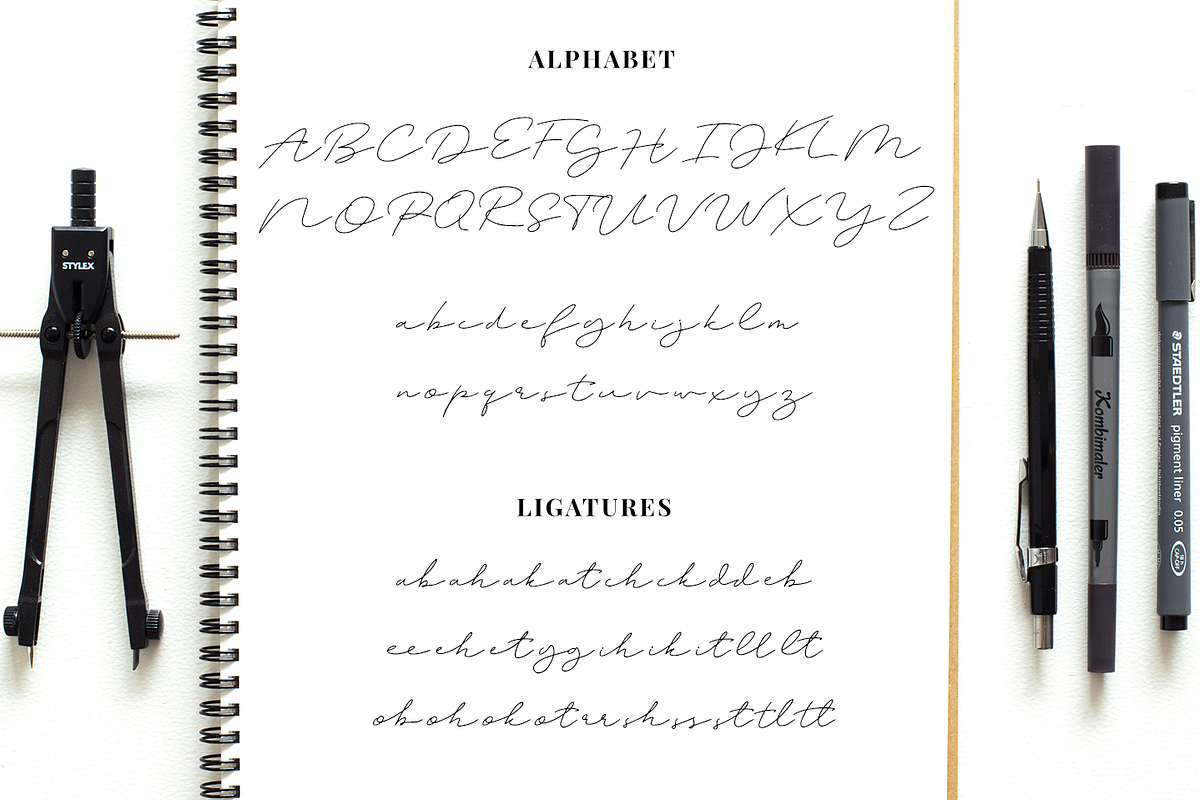 ALPHABET
ABCDEFGHIJKLM
NOPQRSTUVWXYZ
abcdefghijklm
nopqrstuvwxyz
LIGATURES
abahakatchckddeb
eeehetygihikitlllt
obohokotrrshssstttltt
STYLEX
Kombimaler
STAEDTLER pigment liner 0.05